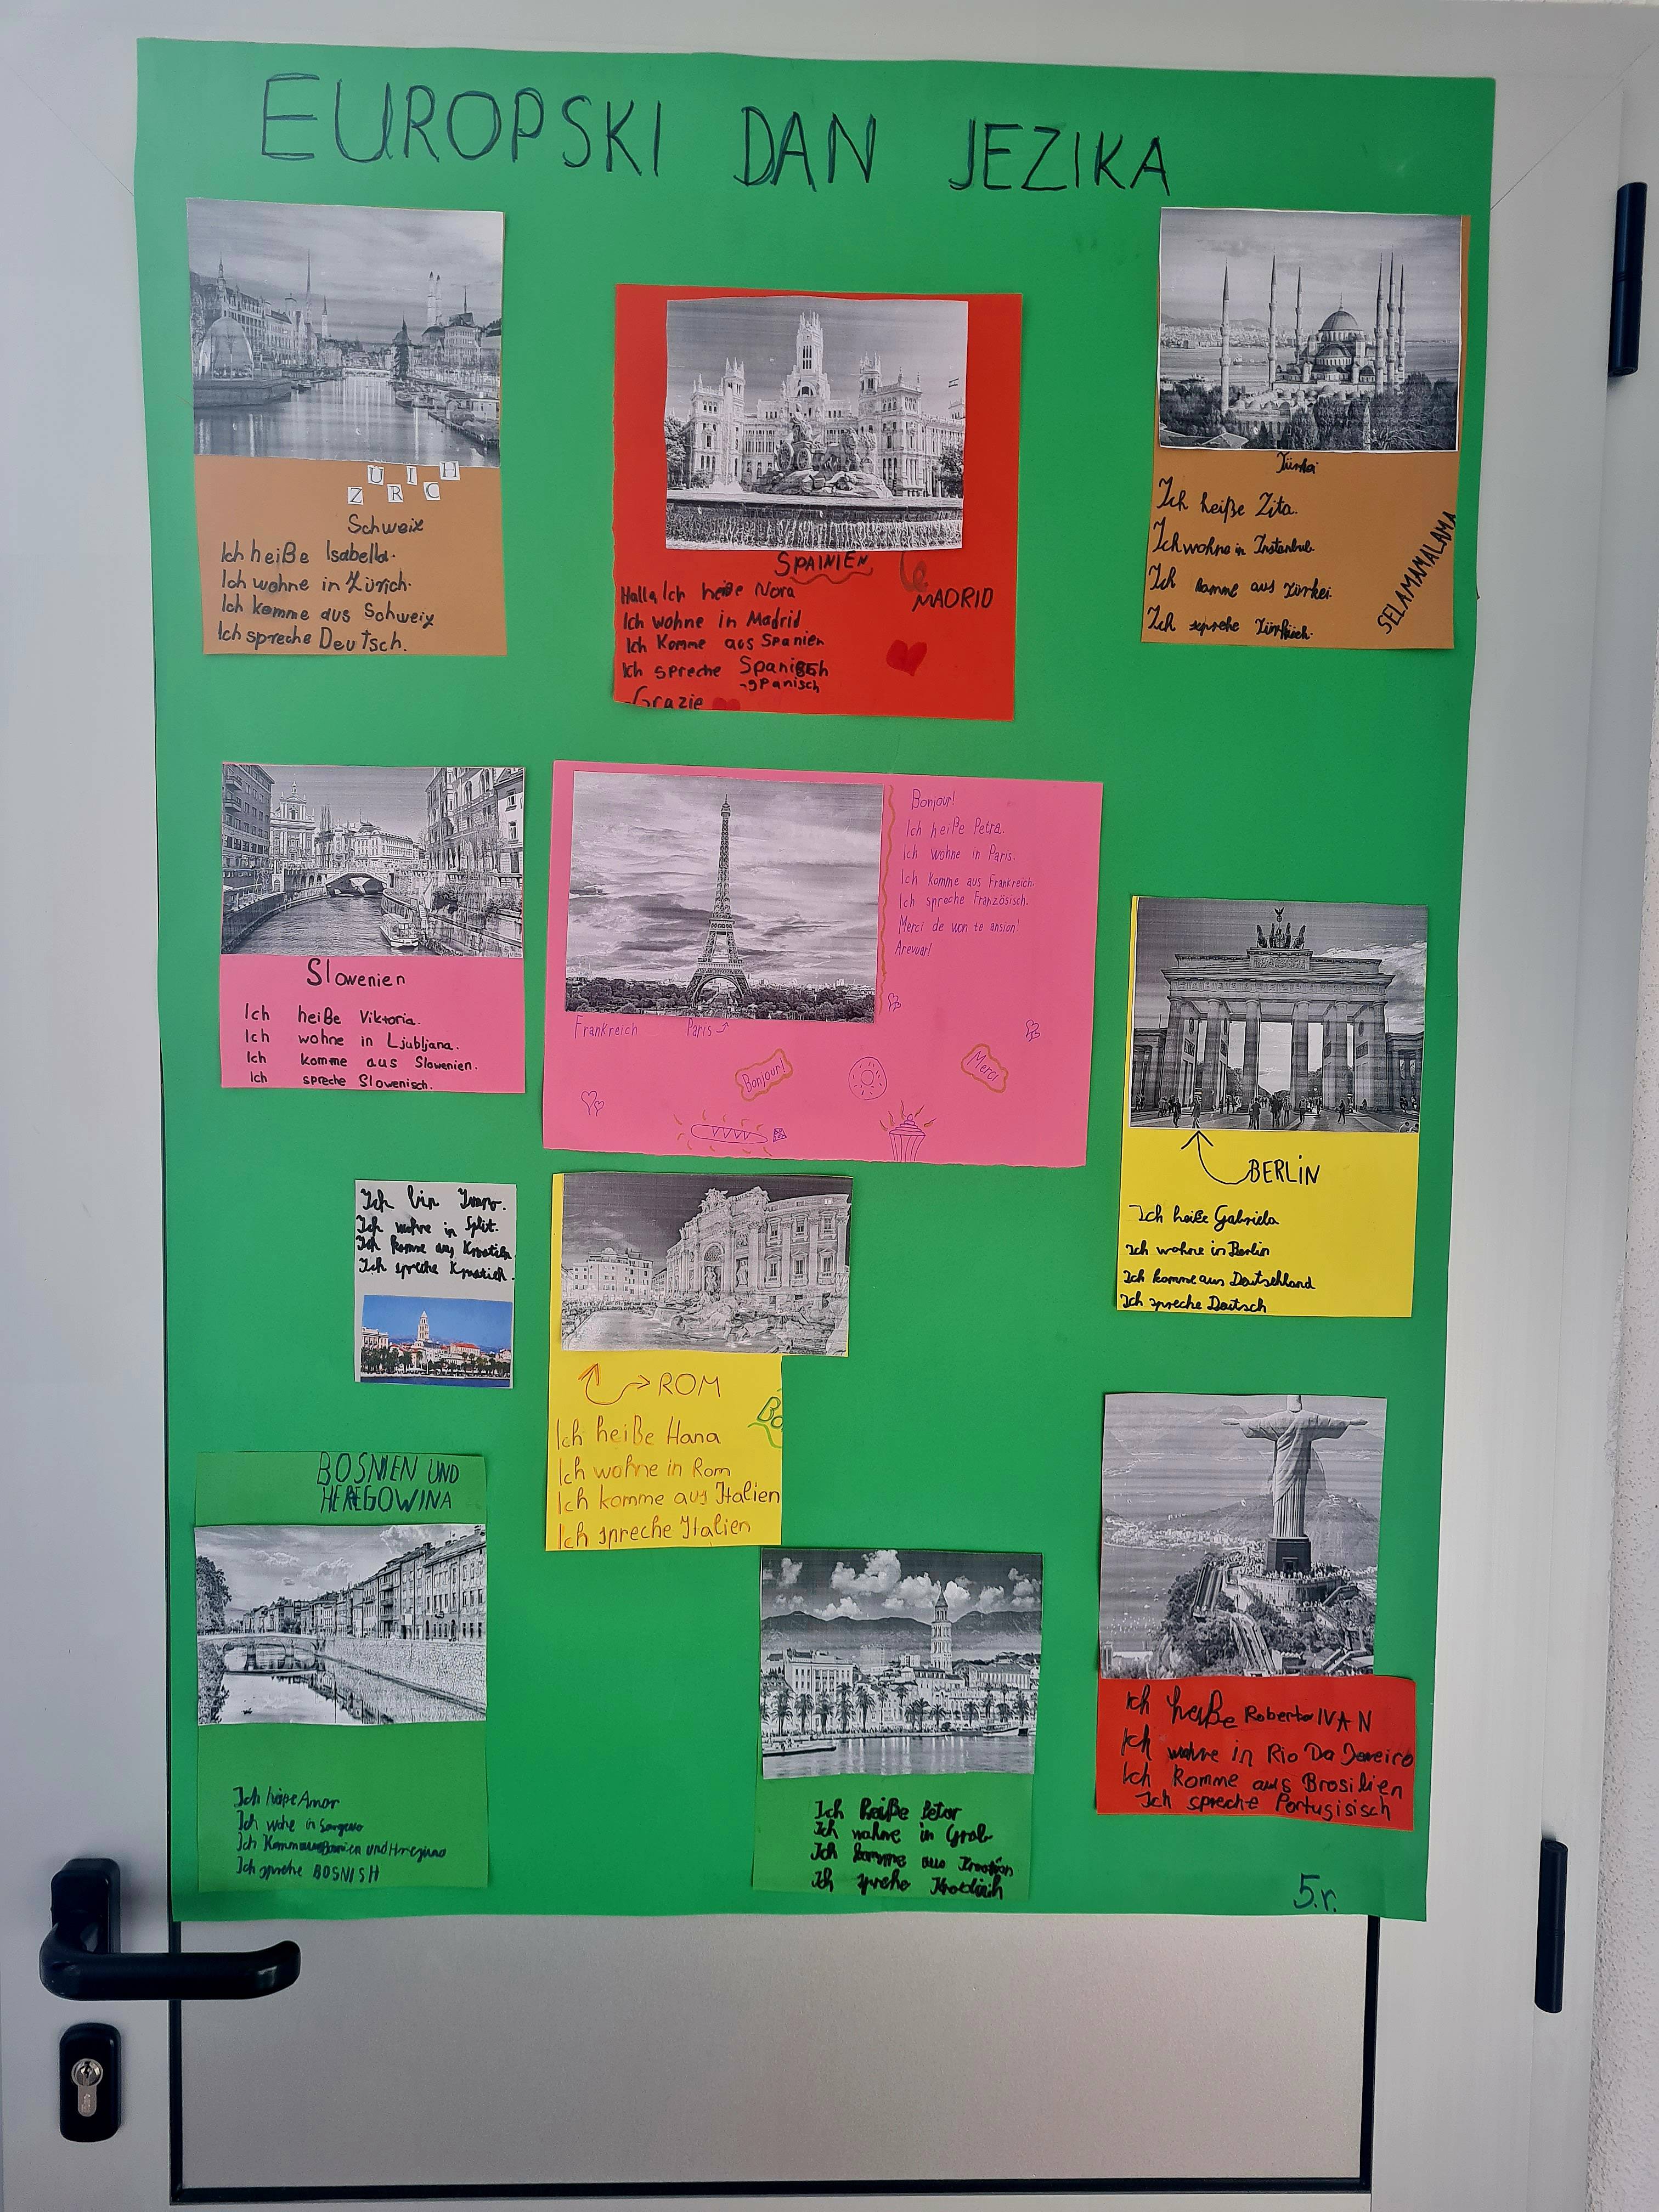 EUROPSKI DAN JEZIKA
ZÜRICH
Schweiz
Ich heiße Isabella.
Ich wohne in Zürich.
Ich komme aus Schweiz
Ich spreche Deutsch.
SPAINIEN
MADRID
Hallo, Ich heiße Nora
Ich wohne in Madrid
Ich Komme aus Spanien
Ich spreche Spanisch
-spanisch
-Grazie
Türkei
Ich heiße Zita.
Ich wohne in Instanbul.
Ich komme aus Türkei.
Ich spreche Türkisch.
SELAMAMALAMA
Slowenien
Ich heiße Viktoria.
Ich wohne in Ljubljana.
Ich komme aus Slowenien.
Ich spreche Slowenisch.
Bonjour!
Ich heiße Petra.
Ich wohne in Paris.
Ich komme aus Frankreich.
Ich spreche Französisch.
Merci de won te ansion!
Arevuar!
Frankreich Paris
Bonjour!
Merci
BERLIN
Ich heiße Gabriela
Ich wohne in Berlin
Ich komme aus Deutschland
Ich spreche Deitsch
Ich bin
Ich wohne in Split.
Ich komme aus
Ich spreche
ROM
Bo
Ich heiße Hana
Ich wohne in Rom
Ich komme aus Italien
Ich spreche Italien
BOSNIEN UND
HEREGOWINA
Ich Amar
Ich in
Ich
Ich BOSNISH
Ich heiße Petar
Ich wohne in Grab
Ich komme aus
Ich
Ich heiße Roberto IVAN
Ich wohne in Rio Da Joneiro
Ich Komme aus Brosilien
Ich spreche Portugisisch
5.r.